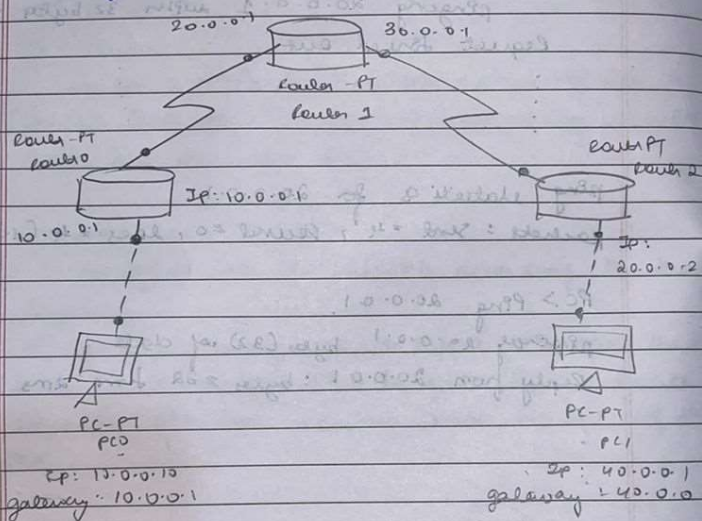 20.0.0.1
30.0.0.1
Router-PT
Router 1
Router-PT
Router 0
Router PT
Router 2
Ip: 10.0.0.1
10.0.0.1
Ip:
20.0.0.2
PC-PT
PC0
Ip: 10.0.0.10
gateway: 10.0.0.1
PC-PT
PC1
Ip: 40.0.0.1
gateway: 40.0.0